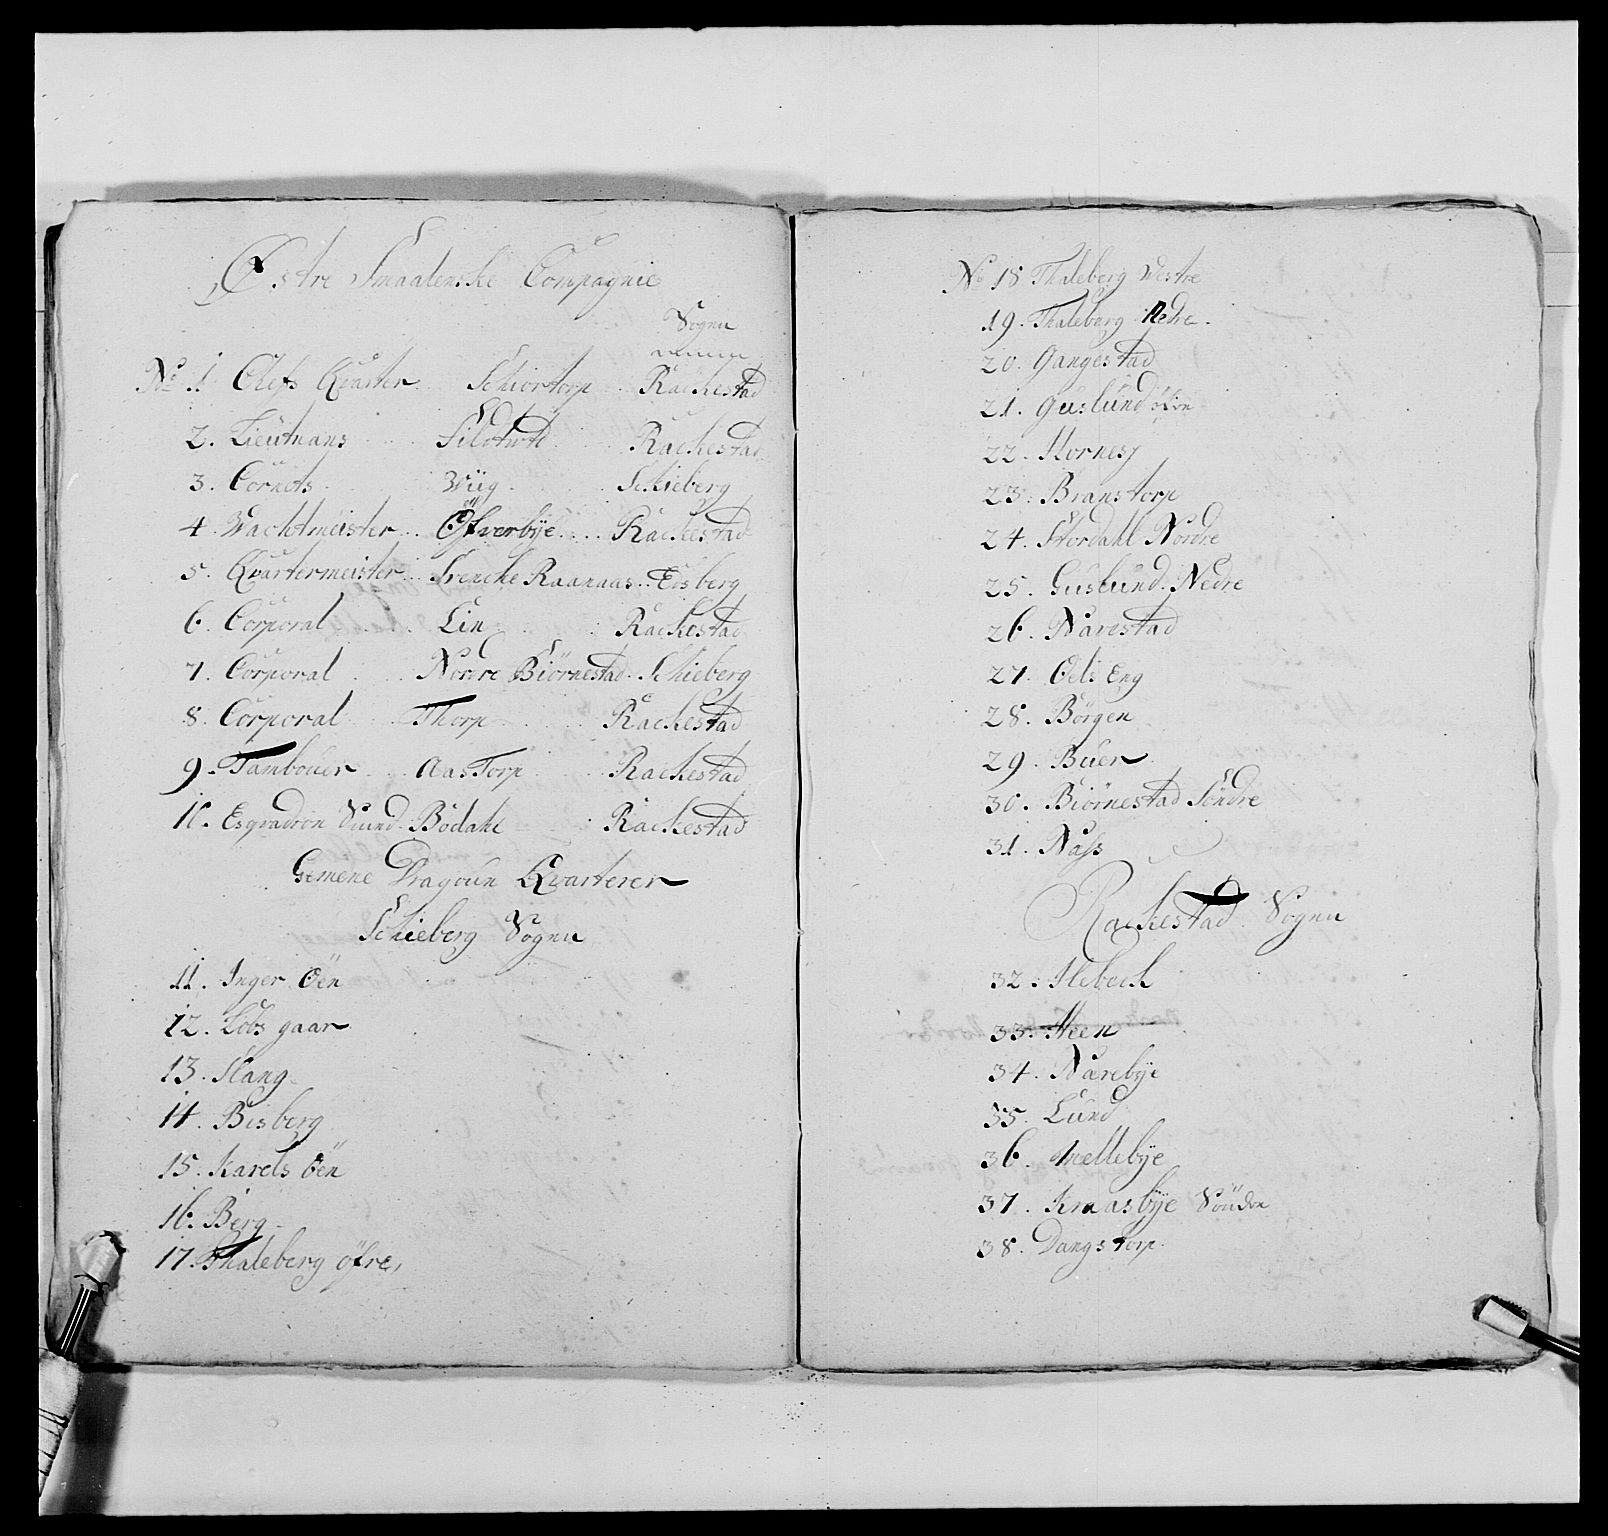 Østre Smaalenske Compagnie
Sogner
No 1 Chefs Qvarter Schiørtorp Rackestad
2. Lieutnans Rackestad
3. Cornets Wiig Schieberg
4. Wachtmeister Öfverbÿe Rackestad
5. Qvartermeister Raanaas Eisberg
6. Corporal Lin Rackestad
7. Corporal Nordre Biörnestad Schieberg
8. Corporal Thorp Rackestad
9. Tambouer Aas Torp Rackestad
10. Esqvadron Smed Bödahl Rackestad
Gemene Dragoun Qvarterer
Schieberg Sogn
11. Inger Öen
12. Lobs gaar
13. Hang
14. Bisberg
15. Karels Öen
16. Berg
17. Thaleberg öfre
No 18 Thaleberg Westre
19. Thaleberg Nedre
20. Gangestad
21. Guslund öfre
22. Hornes
23. Branstorp
24. Stordahl Nordre
25. Guslund Nedre
26. Navestad
27. Oels Eng
28. Börgen
29. Buer
30. Biörnestad Söndre
31. Näss
Rackestad Sogn
32. Hebeck
33. Heen
34. Nærebÿe
35. Lund
36. Mellebÿe
37. Knaasbÿe Sönder
38. Dangstorp